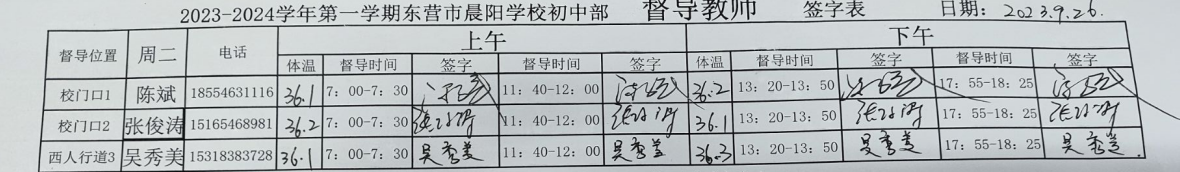 2023-2024学年第一学期东营市晨阳学校初中部 督导教师 签字表 日期：2023.9.26.
督导位置 周二 电话 上午 下午
体温 督导时间 签字 督导时间 签字 体温 督导时间 签字 督导时间 签字
校门口1 陈斌 18554631116 36.1 7：00-7：30 11：40-12：00 36.2 13：20-13：50 17：55-18：25
校门口2 张俊涛 15165468981 36.2 7：00-7：30 张俊涛 11：40-12：00 张俊涛 36.1 13：20-13：50 张俊涛 17：55-18：25 张俊涛
西人行道3 吴秀美 15318383728 36.1 7：00-7：30 吴秀美 11：40-12：00 吴秀美 36.3 13：20-13：50 吴秀美 17：55-18：25 吴秀美